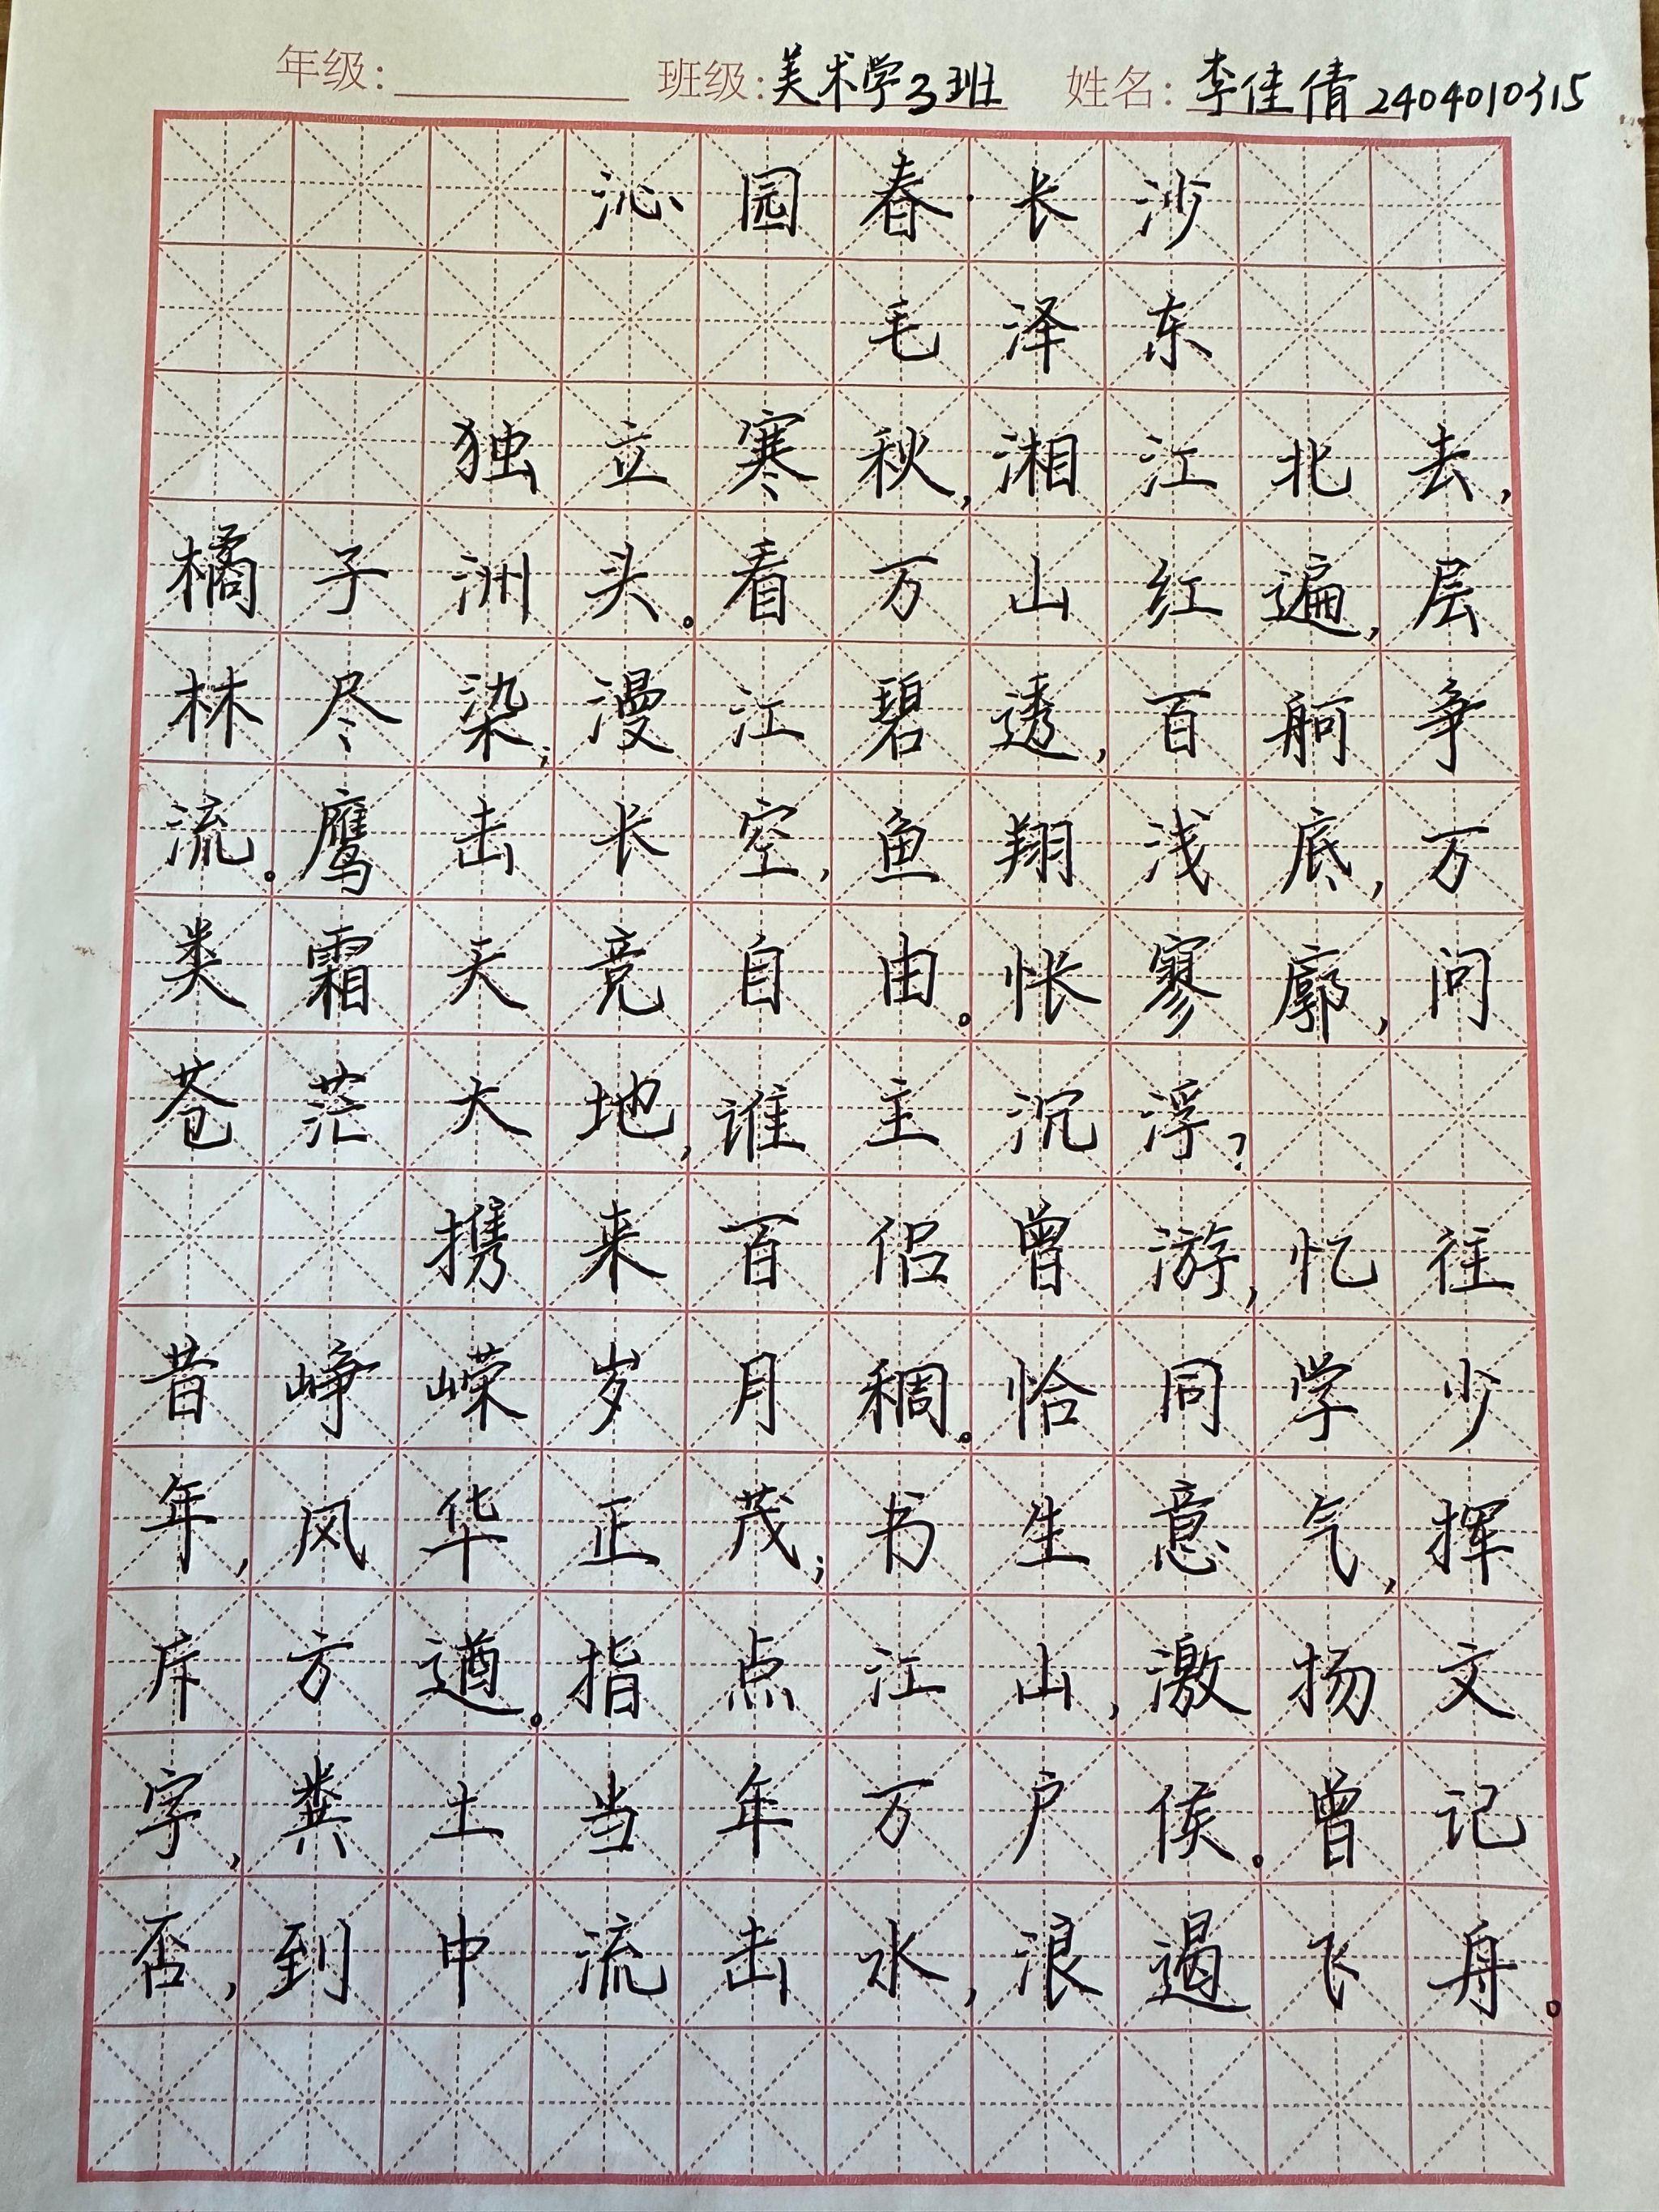 年级：  班级：美术学3班  姓名：李佳倩 2404010315
沁园春·长沙
毛泽东
独立寒秋,湘江北去,
橘子洲头。看万山红遍,层
林尽染;漫江碧透,百舸争
流。鹰击长空,鱼翔浅底,万
类霜天竞自由。怅寥廓,问
苍茫大地,谁主沉浮?
携来百侣曾游,忆往
昔峥嵘岁月稠。恰同学少
年,风华正茂;书生意气,挥
斥方遒。指点江山,激扬文
字,粪土当年万户侯。曾记
否,到中流击水,浪遏飞舟。